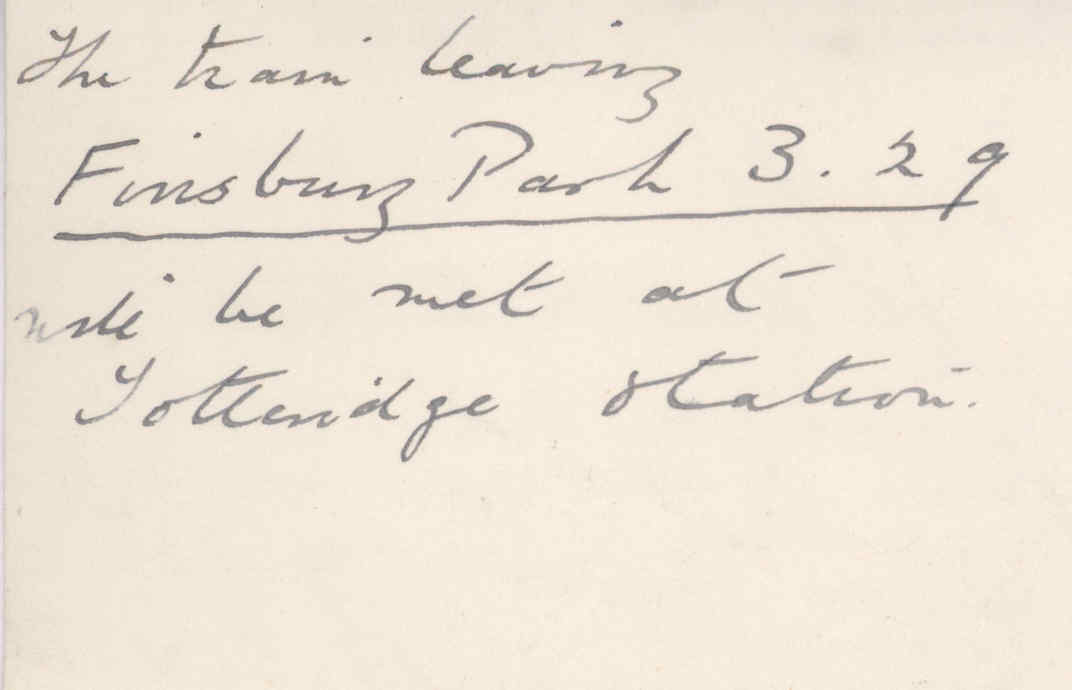 The train leaving
Finsbury Park 3.29
will be met at
Totteridge station.